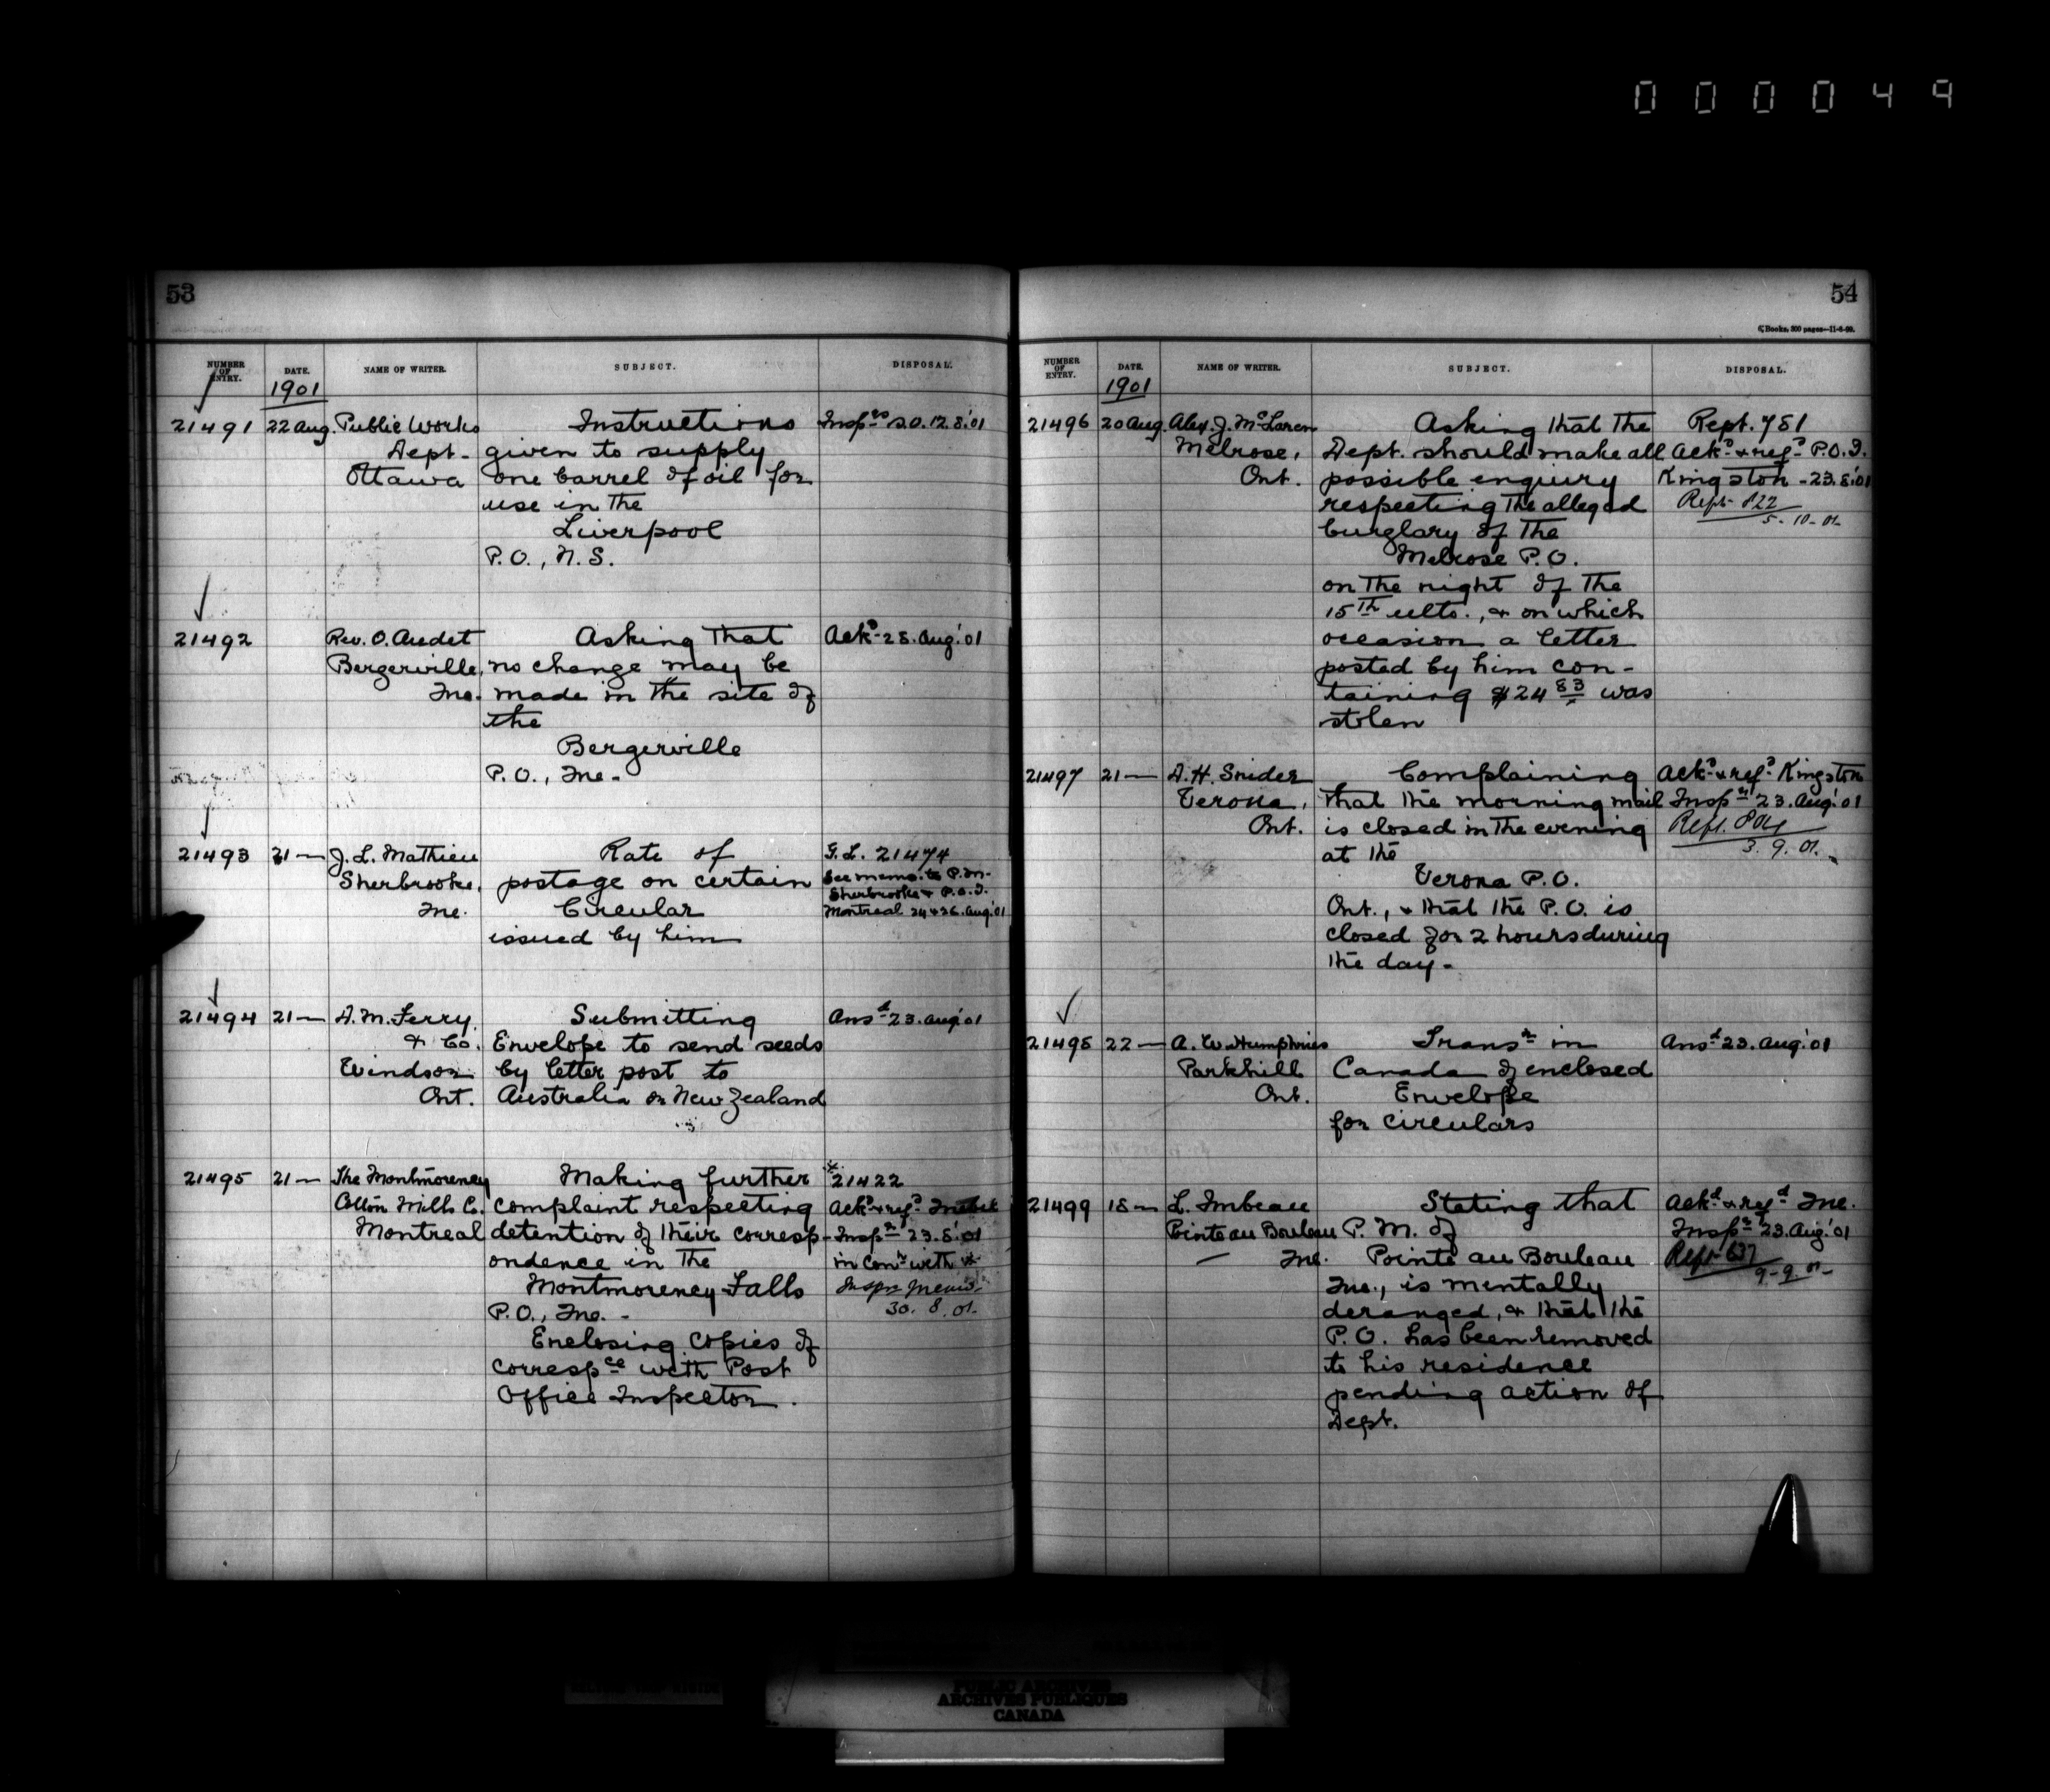 000049
53
NUMBER OF ENTRY. DATE. NAME OF WRITER. SUBJECT. DISPOSAL.
1901
21491 22 Aug. Public Works Instructions
Dept. given to supply
Ottawa one barrel of oil for
use in the
Liverpool
P.O., N.S.
21492 Rev. O. Audet Asking that Ackd 28. Aug. '01
Bergerville, no change may be
Que. made in the site of
the
Bergerville
P.O., Que.
21493 21 — J. L. Mathieu Rate of G.L. 21474
Sherbrooke, postage on certain See memo. to P.M.
Que. Circular Sherbrooke & P.O.I.
issued by him Montreal 24 & 26. Aug. '01
21494 21 — D. M. Ferry Submitting Ansd 23. Aug. '01
& Co. Envelope to send seeds
Windsor by letter post to
Ont. Australia or New Zealand
21495 21 — The Montmorency Making further * 21422
Cotton Mills Co. complaint respecting Ackd & refd Quebec
Montreal detention of their corresp- Inspr 23.8.'01
ondence in the in Conn with *
Montmorency Falls Inspr memo.
P.O., Que. - 30. 8. 01.
Enclosing Copies of
Correspce with Post
Office Inspector.
54
6, Books, 300 pages—11-8-99.
NUMBER OF ENTRY. DATE. NAME OF WRITER. SUBJECT. DISPOSAL.
1901
21496 20 Aug. Alex. J. McLaren Asking that the Rept. 781
Melrose, Dept. should make all Ackd & refd P.O.I.
Ont. possible enquiry Kingston - 23.8.'01
respecting the alleged Rept 822
burglary of the 5-10-01-
Melrose P.O.
on the night of the
15th ulto., & on which
occasion a letter
posted by him con-
taining $24 83/x was
stolen
21497 21 — A. H. Snider Complaining Ackd & refd Kingston
Verona, that the morning mail Inspr 23. Aug. '01
Ont. is closed in the evening Rept. 804
at the 3. 9. 01.
Verona P.O.
Ont., & that the P.O. is
closed for 2 hours during
the day -
21498 22 — A. W. Humphries Transn in Ansd 23. Aug. '01
Parkhill Canada of enclosed
Ont. Envelope
for circulars
21499 18 — L. Imbeau Stating that Ackd & refd Que.
Pointe au Bouleau P.M. of Inspr 23. Aug. '01
— Que. Pointe au Bouleau Rept 637
Que., is mentally 9-9-01-
deranged, & that the
P.O. has been removed
to his residence
pending action of
Dept.
PUBLIC ARCHIVES
ARCHIVES PUBLIQUES
CANADA